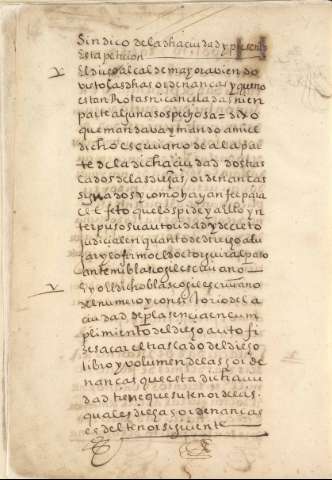 Sindico de la dha ciudad y presento
esta peticion
El dicho alcalde mayor aviendo
visto las dhas ordenanças y que no
estan Rotas ni canceladas ni en
parte alguna sospechosa = dixo
que mandava y mando a mi el
dicho escrivano de a la par
te de la dicha ciudad dos tras
lados de las dichas ordenanças
sygnados y como hagan fee para
el efeto que los pide y a ello yn
terpuso su autoridad y decreto
judicial en quanto de derecho a lu
gar y lo firmo el doctor paso
ante mi blas gil escrivano
E yo el dicho blas gil escrivano
del numero y consistorio de la
ciudad de plasencia en cum
plimiento del dicho auto fi
ze sacar el traslado del dicho
libro y volumen de las orde
nanças que esta dicha ciu
dad tiene que su tenor de las
quales dichas ordenanças
es del tenor siguiente